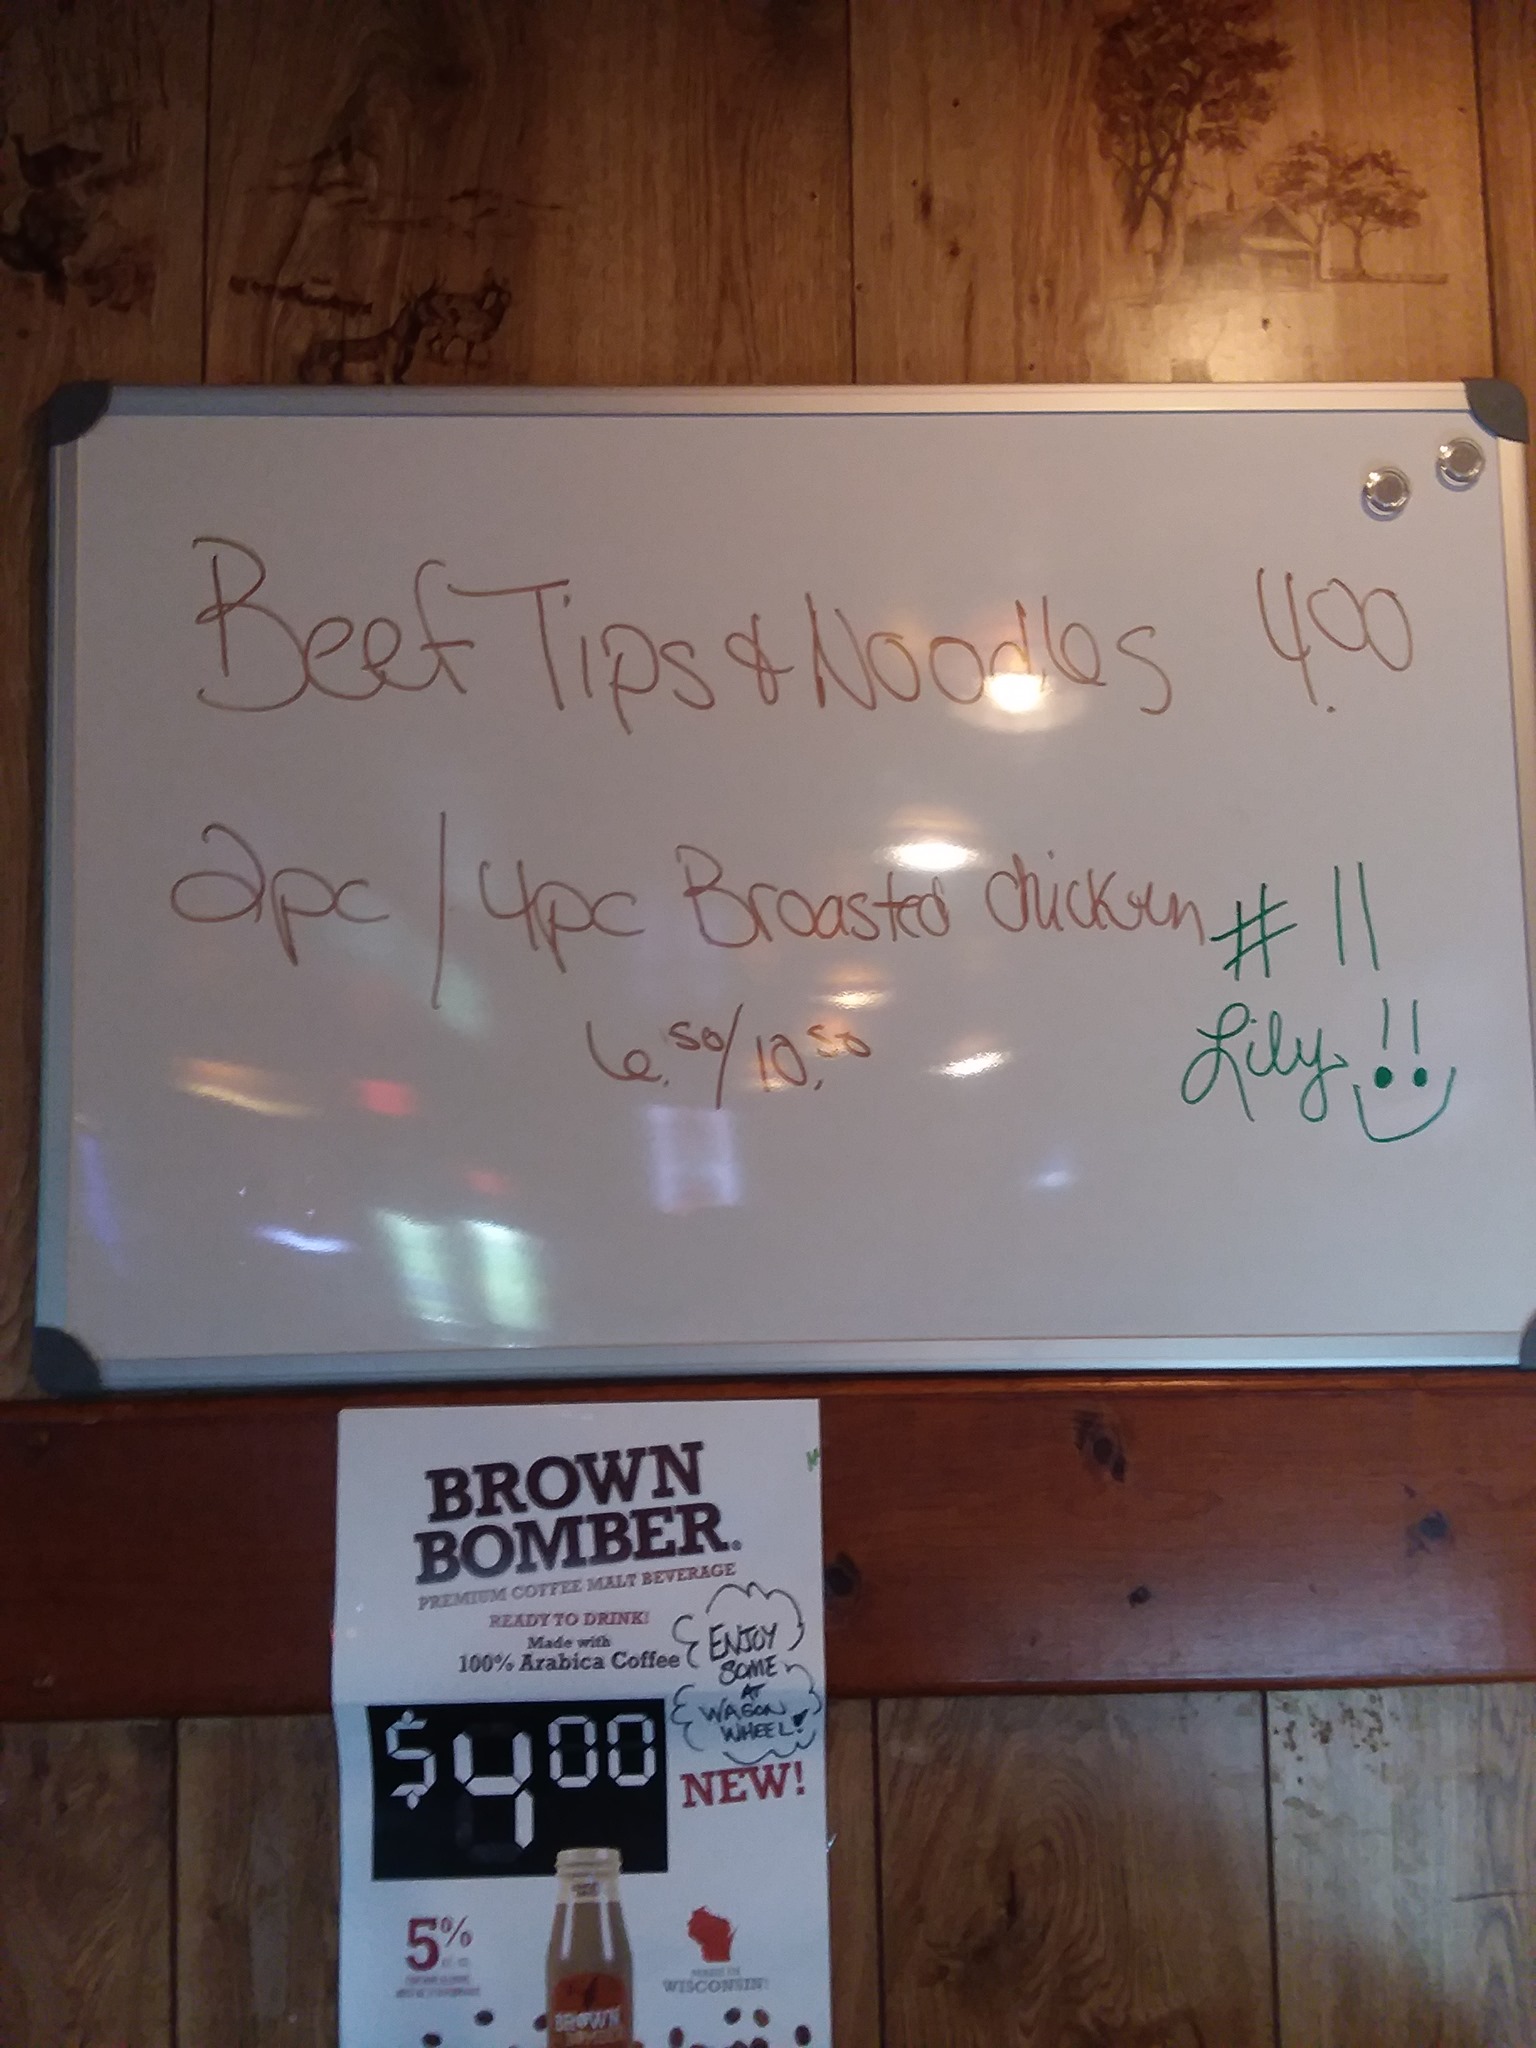 Beef Tips & Noodles 4.00
2pc / 4pc Broasted Chicken
6.50/10.50
# 11
Lily!!
BROWN
BOMBER®
PREMIUM COFFEE MALT BEVERAGE
READY TO DRINK!
Made with
100% Arabica Coffee
ENJOY
SOME
AT
WAGON
WHEEL!
$4.00
NEW!
5%
MADE IN
WISCONSIN!
BROWN